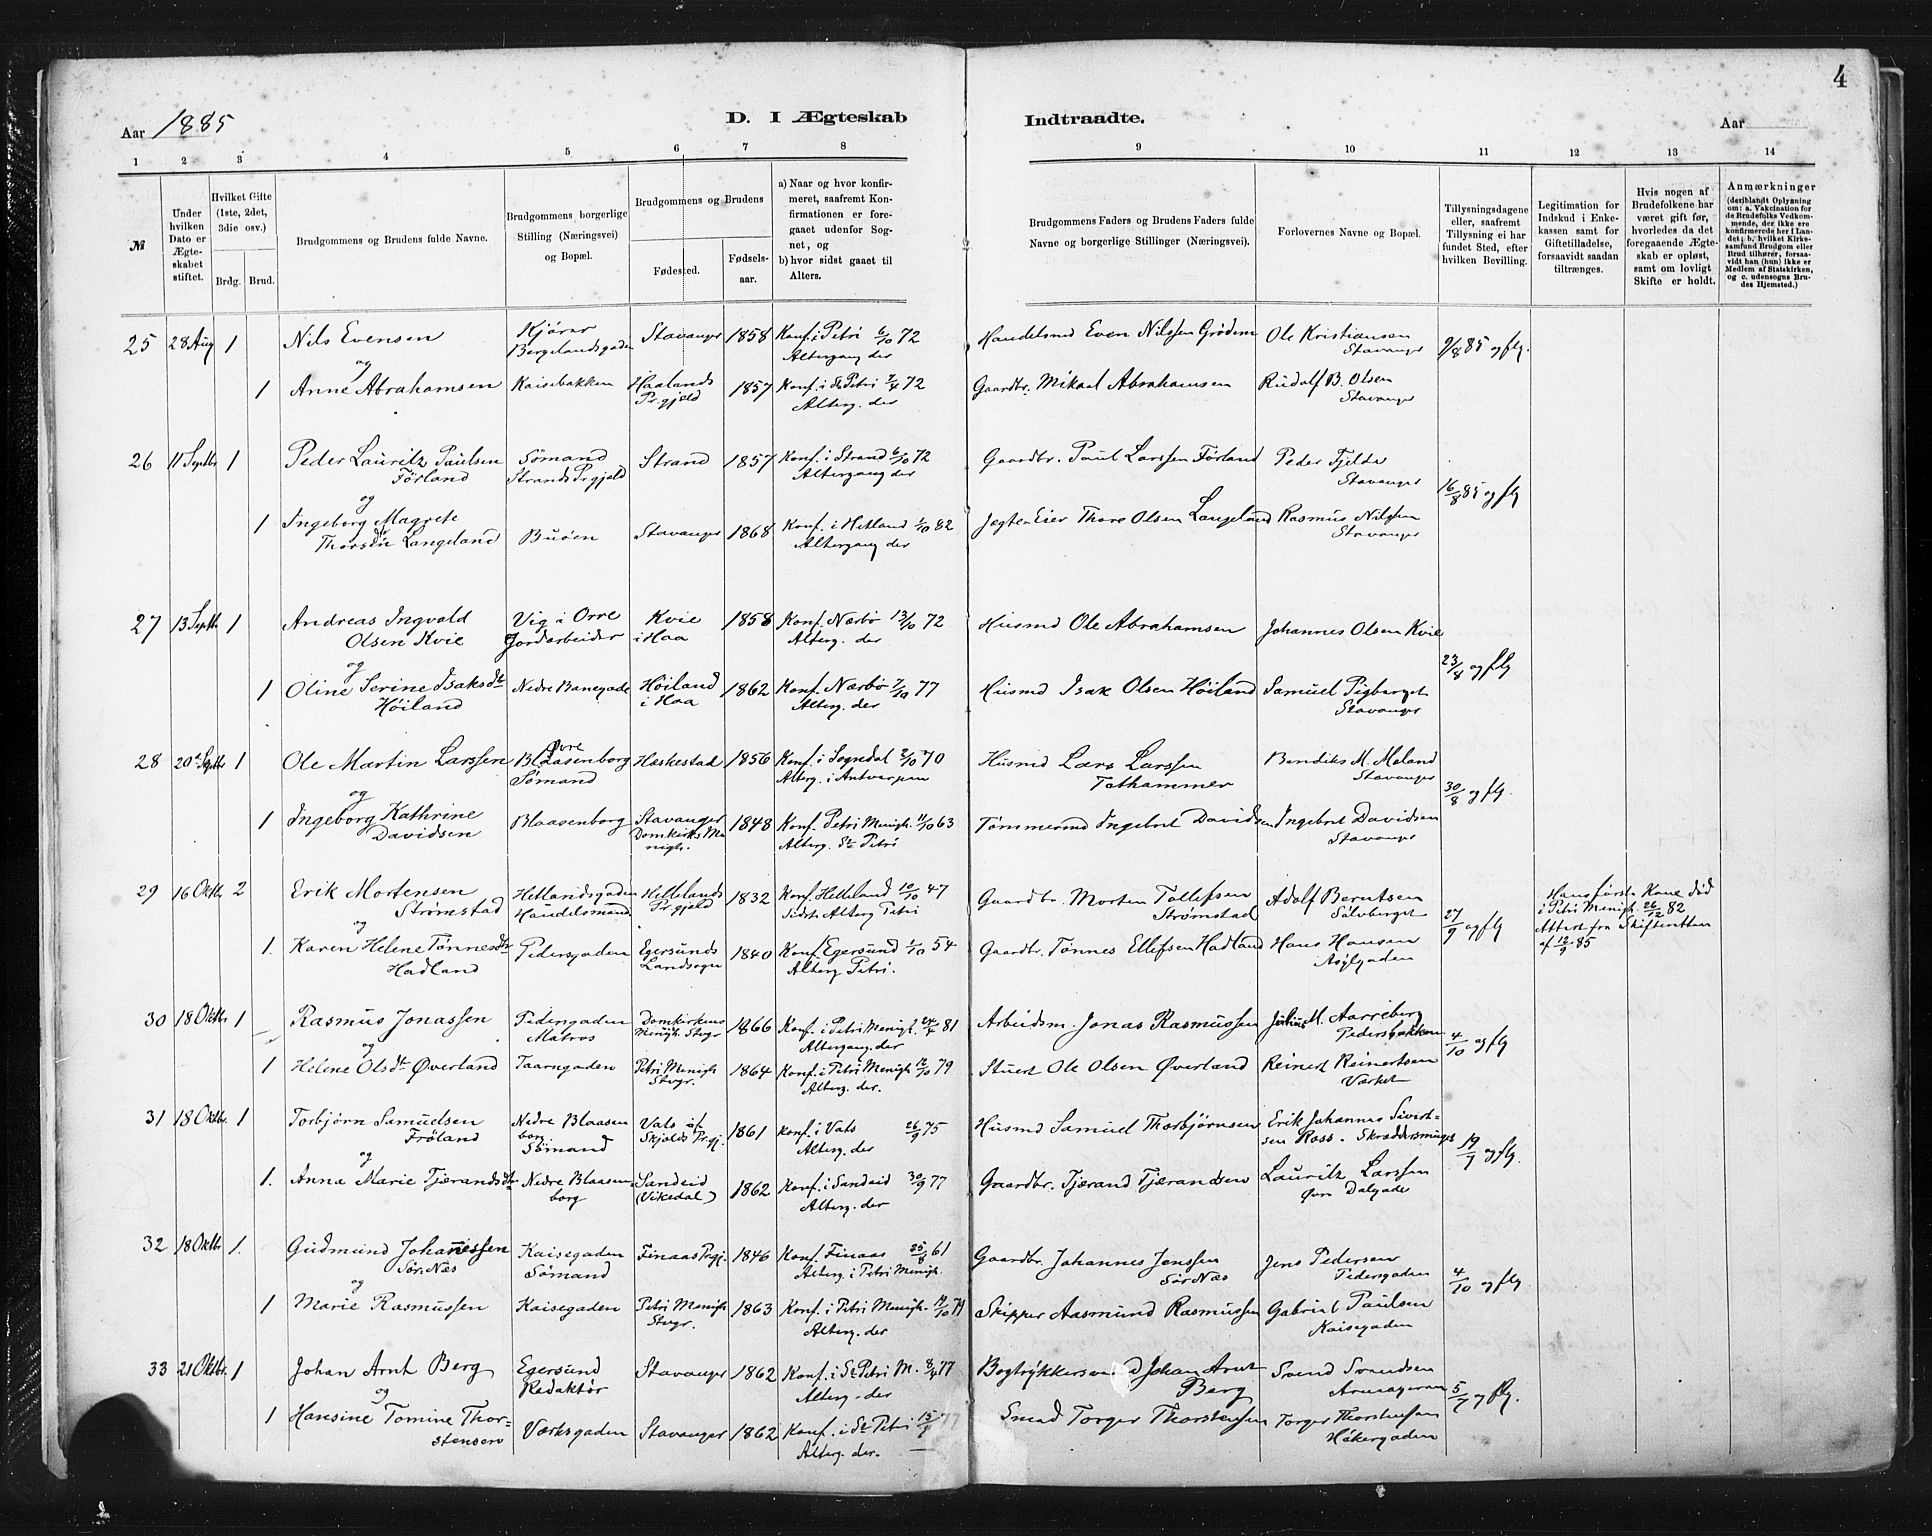 4
Aar 1885
D. I Ægteskab Indtraadte.
Aar
1 2 3 4 5 6 7 8 9 10 11 12 13 14
№
Under hvilken Dato er Ægteskabet stiftet.
Hvilket Gifte (1ste, 2det, 3die osv.)
Brdg. Brud.
Brudgommens og Brudens fulde Navne.
Brudgommens borgerlige Stilling (Næringsvei) og Bopæl.
Brudgommens og Brudens
Fødested.
Fødselsaar.
a) Naar og hvor konfirmeret, saafremt Konfirmationen er foregaaet udenfor Sognet, og
b) hvor sidst gaaet til Alters.
Brudgommens Faders og Brudens Faders fulde Navne og borgerlige Stillinger (Næringsvei).
Forlovernes Navne og Bopæl.
Tillysningsdagene eller, saafremt Tillysning ei har fundet Sted, efter hvilken Bevilling.
Legitimation for Indskud i Enkekassen samt for Giftetilladelse, forsaavidt saadan tiltrænges.
Hvis nogen af Brudefolkene har været gift før, hvorledes da det foregaaende Ægteskab er opløst, samt om lovligt Skifte er holdt.
Anmærkninger
(deriblandt Oplysning om: a. Vakcination for de Brudefolks Vedkommende, der ikke ere konfirmerede her i Landet; b. hvilket Kirkesamfund Brudgom eller Brud tilhører, forsaavidt han (hun) ikke er Medlem af Statskirken, og c. udensogns Brudes Hjemsted.)
25 28 Aug 1 Nils Evensen Kjører Bergelandsgaden Stavanger 1858 Konf. i Petri 6/10 72 Altergang der Handelsmd Even Nilssen Grødem Ole Kristiansen Stavanger 9/8 85 og flg.
og
1 Anne Abrahamsen Kaisebakken Haalands Prgjeld 1857 Konf. i St Petri 7/4 72 Alterg. der Gaardbr. Mikael Abrahamsen Rudolf B. Olsen Stavanger
26 11 Septbr 1 Peder Lauritz Paulsen Førland Sømand Strands Prgjeld Strand 1857 Konf. i Strand 6/10 72 Altergang der Gaardbr. Paul Larssen Førland Peder Fjelde Stavanger 16/8 85 og flg
og
1 Ingeborg Magrete Thorsdtr Langeland Buøen Stavanger 1868 Konf. i Hetland 1/10 82 Altergang der Jægten Eier Thore Olsen Langeland Rasmus Nilssen Stavanger
27 13 Septb 1 Andreas Ingvald Olsen Kvie Vig i Orre Jordarbeider Kvie i Haa 1858 Konf. Nærbø 13/10 72 Alterg. der Husmd Ole Abrahamsen Johannes Olsen Kvie 23/8 og flg
og
1 Oline Serine Isaksdt Høiland Nedre Banegade Høiland i Haa 1862 Konf. Nærbø 7/10 77 Alterg. der Husmd Isak Olsen Høiland Samuel Pigberget Stavanger
28 20de Septbr 1 Ole Martin Larssen Øvre Blaasenborg Sømand Heskestad 1856 Konf. i Sogndal 2/10 70 Alterg. i Antwerpen Husmd Lars Larssen Tothammer Bendiks M. Meland Stavanger 30/8 og flg.
og
1 Ingeborg Kathrine Davidsen Blaasenborg Stavanger Domkirks Menigh. 1848 Konf. Petri Menigh. 11/10 63 Alterg. St Petri Tømmermd Ingebret Davidsen Ingebret Davidsen Stavanger
29 16 Oktb 2 Erik Mortensen Strømstad Hetlandsgaden Handelsmand Hellelands Prgjeld 1832 Konf. Helleland 10/10 47 Sidst Alterg Petri Gaardbr. Morten Tollefsen Strømstad Adolf Berntsen Sølvberget 27/9 og flg Hans første Kone død i Petri Menigh 26/12 82 Attest fra Skifteretten af 12/9 85
og
1. Karen Helene Tønnesdtr Hadland Pedersgaden Egersunds Landsogn 1840 Konf. Egersund 1/10 54 Alterg Petri. Gaardbr. Tønnes Ellefsen Hadland Hans Hansen Asylgaden
30 18 Oktb 1 Rasmus Jonassen Pedersgaden Matros Domkirkens Menigh. Stvgr 1866 Konf. i Petri Menigh. 24/4 81 Altergang der Arbeidsm. Jonas Rasmussen Julius M. Aarreberg Pedersbakken 4/10 og flg
og
1 Helene Olsdt Øverland Taarngaden Petri Menigh Stvgr. 1864 Konf. i Petri Menigh 12/10 79 Alterg. der. Stuert Ole Olsen Øverland Reinert Reinertsen Værket
31 18 Oktbr. 1 Torbjørn Samuelsen Frøland Nedre Blaasenborg Sømand Vats af Skjolds Prgj. 1861 Konf. i Vats 26/9 75 Alterg. der Husmd Samuel Thorbjørnsen Erik Johannes Sivertsen Ross. Skreddersmuget 19/7 og flg.
og
1. Anna Marie Tjærandsdtr Nedre Blaasenborg Sandeid (Vikedal) 1862 Konf. i Sandeid 30/9 77 Alterg. der Gaardbr. Tjærand Tjærandsen Lauritz Larssen Øvre Dalgade
32 18 Oktbr 1. Gudmund Johannessen Sør-Næs Kaisegaden Sømand Finaas Prgj. 1846 Konf. Finaas 25/8 61 Alterg. i Petri Menigh. Gaardbr. Johannes Jenssen Sør Næs Jens Pedersen Pedersgaden 4/10 og flg
og
1 Marie Rasmussen Kaisegaden Petri Menigh Stvgr. 1863 Konf. i Petri Menigh. 19/10 79 Alterg. der Skipper Aasmund Rasmussen Gabriel Paulsen Kaisegaden
33 21 Oktbr. 1 Johan Arnt Berg Egersund Redaktør Stavanger 1862 Konf. i St Petri M. 8/4 77 Alterg. der Bogtrykkersvend Johan Arnt Berg Svend Svendsen 5/7 og flg.
og
1 Hansine Tomine Thorstensen Værksgaden Stavanger 1862 Konf. i St Petri 15/4 77 Alterg. der. Smed Torger Thorstensen Torger Thorstensen Høkergaden